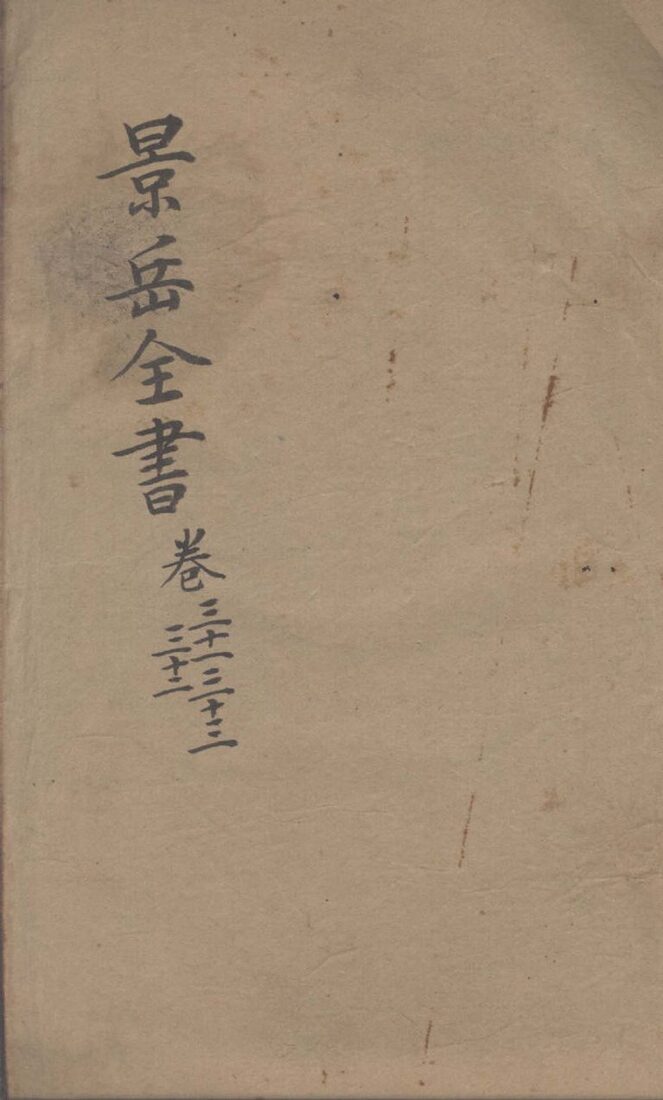 景岳全書
卷
三十一 三十三
三十二